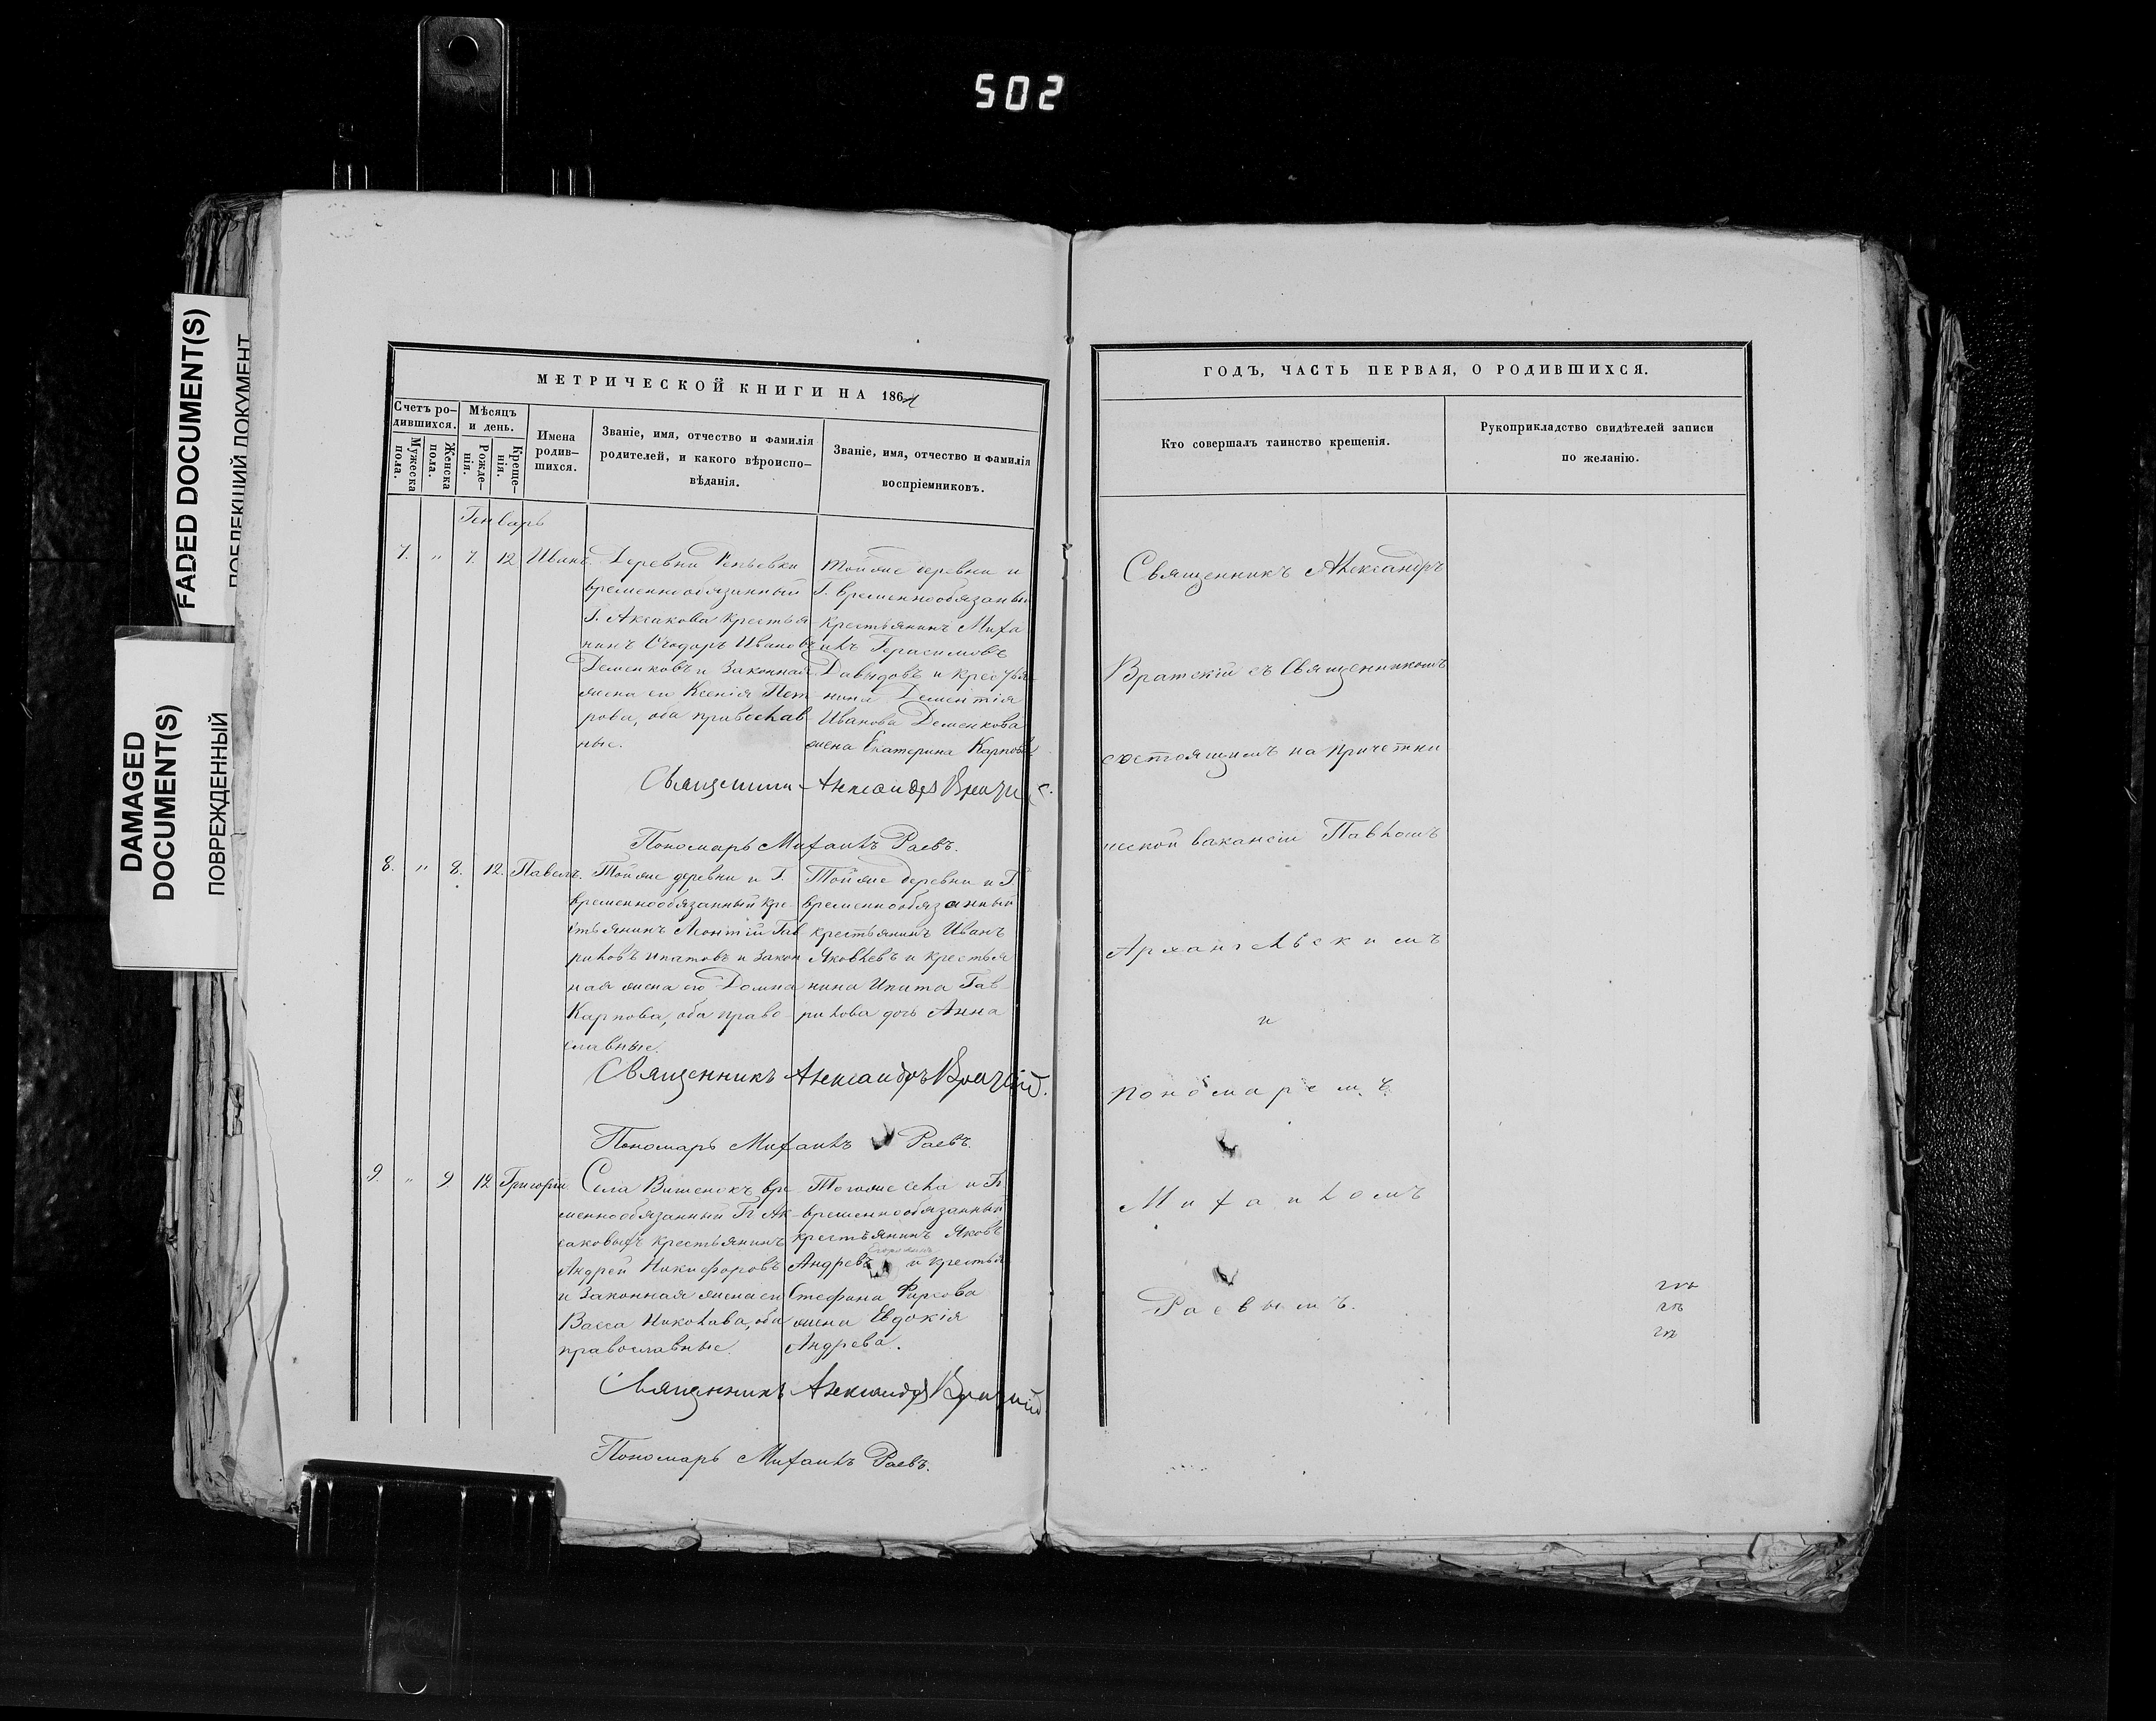 502
FADED DOCUMENT(S)
DAMAGED
DOCUMENT(S)
ПОВРЕЖДЕННЫЙ
МЕТРИЧЕСКОЙ КНИГИ НА 1864
Счетъ ро-
дившихся.
Мужеска
пола.
Женска
пола.
Мѣсяцъ
и день.
Рожде-
нія.
Креще-
нія.
Имена
родив-
шихся.
Званіе, имя, отчество и фамилія
родителей, и какого вѣроиспо-
вѣданія.
Званіе, имя, отчество и фамилія
воспріемниковъ.
Генварь
7. " 7. 12 Иванъ.
Деревни
временнообязанный
Г. Аксакова крестья
нинъ Ѳеодоръ Ивановъ
Деменковъ и законная
жена его Ксенія Пет
рова, оба православ
ные.
Тойже деревни и
Г. временнообязаный
крестьянинъ Миха
илъ Герасимовъ
Давыдовъ и крестья
нина Дементія
Иванова Деменкова
жена Екатерина Карпова
Священникъ Александръ
Пономарь Михаилъ Раевъ.
8. " 8. 12. Павелъ.
Тойже деревни и Г.
временнообязанный кре-
стьянинъ Леонтій Гав
риловъ Ипатовъ и закон
ная жена его Домна
Карпова, оба право-
славные.
Тойже деревни и Г.
временнообязанный
крестьянинъ Иванъ
Яковлевъ и крестья
нина Ипата Гав-
рилова дочь Анна
Священникъ Александръ
Пономарь Михаилъ Раевъ.
9. " 9 12 Григорій.
Села Вишенокъ вре
меннообязанный Гг. Ак-
саковыхъ крестьянинъ
Андрей Никифоровъ
и законная жена его
Васса Николава, оба
православные.
Тогоже села и Гг.
временнообязанный
крестьянинъ Яковъ
Андревъ и крестья
Стефана Фирсова
жена Евдокія
Андрева.
Священникъ Александръ
Пономарь Михаилъ Раевъ.
ГОДЪ, ЧАСТЬ ПЕРВАЯ, О РОДИВШИХСЯ.
Кто совершалъ таинство крещенія.
Рукоприкладство свидѣтелей записи
по желанію.
Священникъ Александръ
Вратскій съ Священникомъ
состоящимъ на причетни
ческой вакансіи Павломъ
Архангельскимъ
и
пономаремъ
Михаиломъ
Раевымъ.